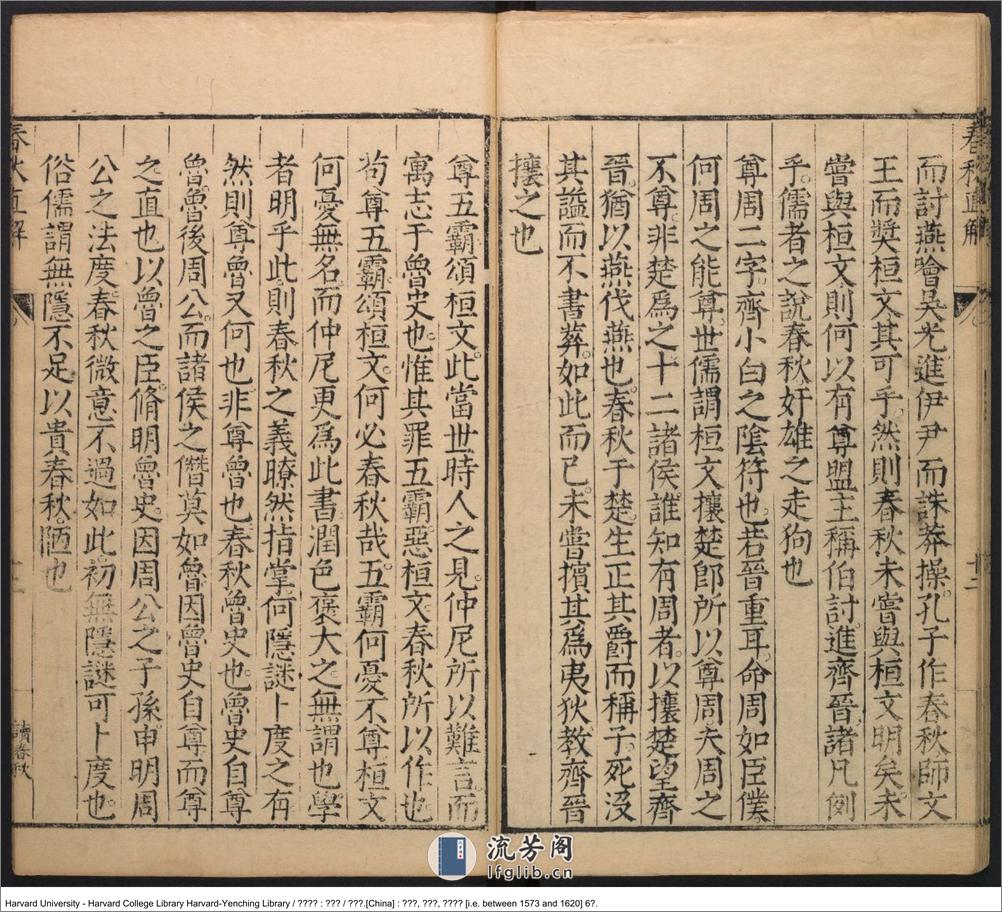 春秋直解
十二
而討燕噲吳光進伊尹而誅莽操。孔子作春秋師文
王而奬桓文其可乎。然則春秋未嘗與桓文明矣未
嘗與桓文則何以有尊盟主稱伯討進齊晉。諸凡例
乎。儒者之說春秋奸雄之走狗也
尊周二字。齊小白之陰符也。若晉重耳。命周如臣僕。
何周之能尊。世儒謂桓文攘楚卽所以尊周夫周之
不尊。非楚爲之十二諸侯誰知有周者。以攘楚望齊
晉。猶以燕伐燕也。春秋于楚生正其爵而稱子。死沒
其謚而不書葬。如此而已。未嘗擯其爲夷狄教齊晉
攘之也
尊五霸頌桓文。此當世時人之見。仲尼所以難言。而
寓志于魯史也。惟其罪五霸惡桓文春秋所以作也
茍尊五霸頌桓文。何必春秋哉。五霸何憂不尊桓文
何憂無名。而仲尼更爲此書。潤色褒大之。無謂也。學
者明乎此。則春秋之義瞭然指掌。何隱謎卜度之有
然則尊魯又何也。非尊魯也春秋魯史也。魯史自尊
魯。魯後周公。而諸侯之僭莫如魯因魯史自尊而尊
之直也以魯之臣。脩明魯史。因周公之子孫申明周
公之法度。春秋微意不過如此。初無隱謎可卜度也。
俗儒謂無隱不足以貴春秋。陋也
春秋直解
讀春秋
Harvard University - Harvard College Library Harvard-Yenching Library / ???? : ??? / ???.[China] : ???, ???, ???? [i.e. between 1573 and 1620] 6?.
流芳阁
lfglib.cn